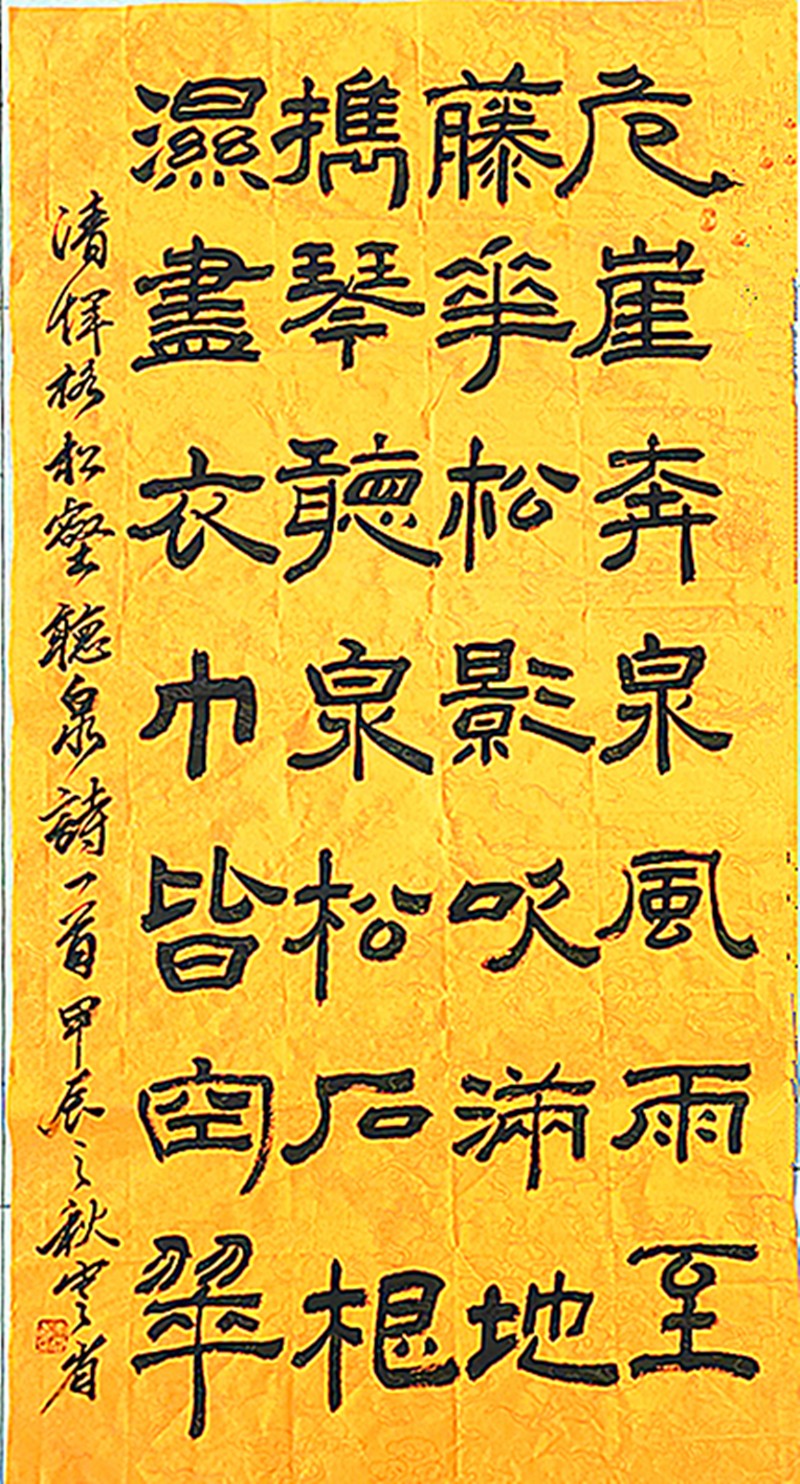 危崖奔泉風雨至
藤華松影吹滿地
攜琴聽泉松石根
濕盡衣巾皆空翠
清惲格松壑聽泉詩一首甲辰之秋雲省